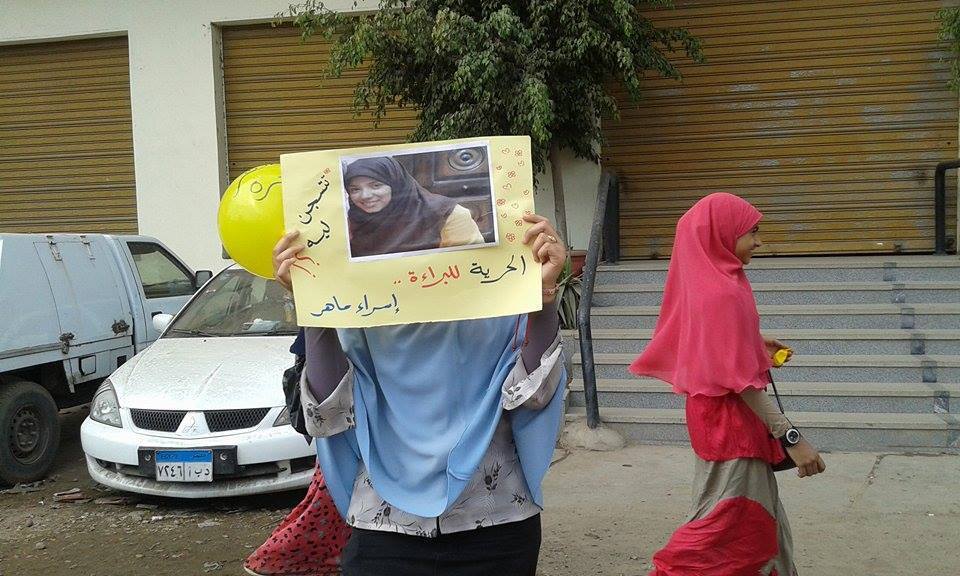 تتسجن ليه
الحرية للبراءة ..
إسراء ماهر
مصر
٧٢٤٦ د ب أ